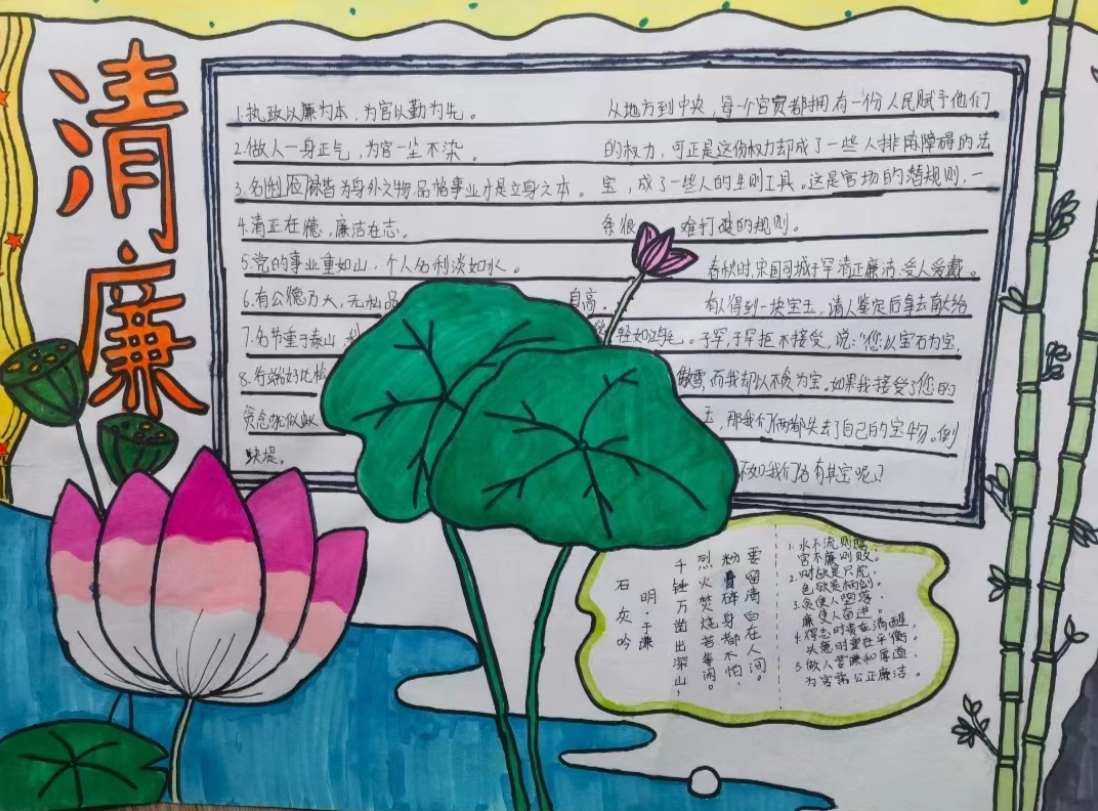 清廉
1.执政以廉为本，为官以勤为先。
2.做人一身正气，为官一尘不染。
3.名利 皆为身外之物品格事业才是立身之本。
4.清正在德，廉洁在志。
5.党的事业重如山，个人名利淡如水。
6.有公德乃大，无私品
自高．
7.名节重于泰山，
轻如鸿毛。
8.行端好比
傲雪，
贪念犹似蚁
缺堤。
从地方到中央，每一个官员都拥有一份人民赋予他们
的权力，可正是这份权力却成了一些人排除障碍的法
宝，成了一些人的 工具。这是官场的潜规则，一
条很 难打破的规则。
春秋时，宋国司城子罕清正廉洁，受人爱戴。
有人得到一块宝玉，请人鉴定后拿去献给
子罕，子罕拒不接受，说："您以宝石为宝，
而我却以不贪为宝。如果我接受了您的
玉，那我们俩都失去了自己的宝物。倒
不如我们各有其宝呢！
石灰吟
明·于谦
千锤万凿出深山，
烈火焚烧若等闲。
粉骨碎身都不怕，
要留清白在人间。
1.水不流则腐，
官不廉则败。
2.财欲是只虎，
色欲是柄剑。
3.贪使人堕落，
廉使人奋进。
4.得志时贵在清醒，
失意时重在平衡。
5.做人 和厚道，
为官需公正廉洁。